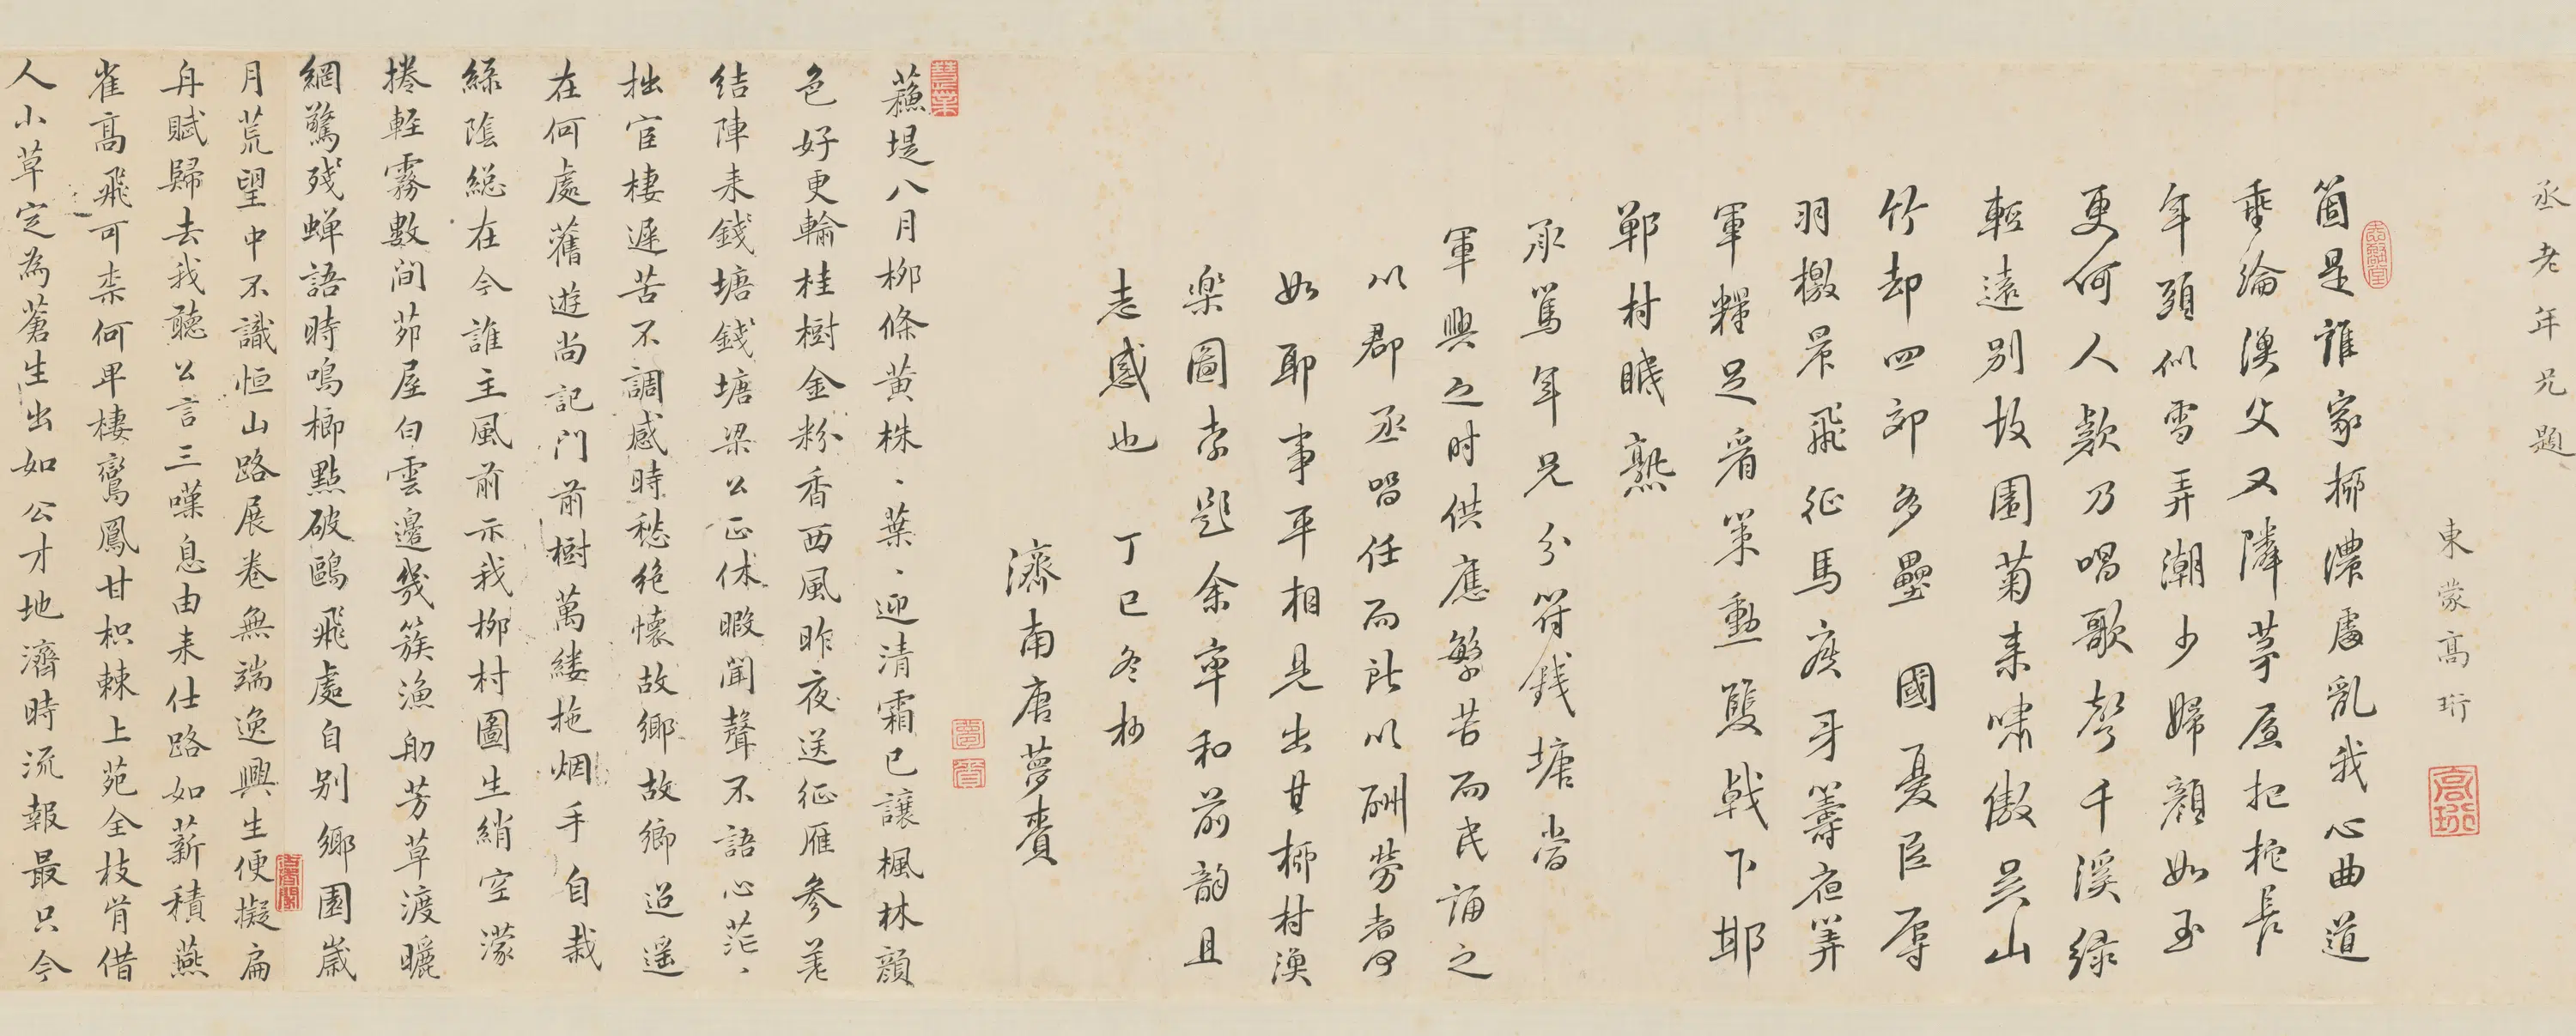 丞老年兄題
東蒙高珩
高珩
箇是誰家柳濃處亂我心曲道
垂綸漁父又隣茅屋把桅長
年頭似雪弄潮少婦顏如玉
更何人欸乃唱歌聲千溪綠
輕遠別故園菊來嘯傲吳山
竹却四郊多壘國憂臣辱
羽檄晨飛征馬疾牙籌夜算
軍糧足看策勳雙戟下邯
鄲村畽熟
承篤年兄分符錢塘當
軍興之时供應繁苦而民誦之
以郡丞留任而所以酬勞者何
如耶事平相見出其柳村漁
樂圖索題余率和前韵且
志感也丁巳冬杪
濟南唐夢賚
蘇堤八月柳條黃株、葉、迎清霜已讓楓林顏
色好更輸桂樹金粉香西風昨夜送征雁參差
結陣来錢塘錢塘梁公正休暇聞聲不語心茫、
拙宦棲遲苦不調感時愁絕懷故鄉故鄉迢遥
在何處舊遊尚記門前樹萬縷拖烟手自栽
綠陰総在今誰主風前示我柳村圖生綃空濛
捲輕霧數間茆屋白雲邊幾簇漁舠芳草渡曬
網驚殘蟬語時鳴榔點破鷗飛處自别鄉園歲
月荒望中不識恒山路展卷無端逸興生便擬扁
舟賦歸去我聽公言三嘆息由来仕路如薪積燕
雀高飛可柰何卑棲鸞鳳甘枳棘上苑全枝肯借
人小草定為蒼生出如公才地濟時流報最只今